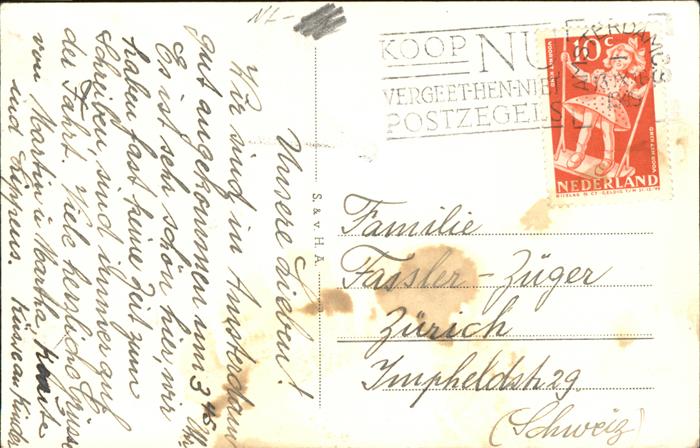 NL-
Unsere Lieben!
Wir sind in Amsterdam
gut angekommen um 3 45 Uhr
Es ist sehr schön hier, wir
haben fast keine Zeit zum
Schreiben, sind immer auf
der Fahrt. Viele herzliche Grüsse
von Martin u. Martha,
und Küsse an Kinder
S. & v. H. A.
KOOP NU
VERGEET-HEN-NIET
POSTZEGELS
AMSTERDAM
VOOR HET KIND
10 C
VOOR HET KIND
NEDERLAND
Familie
Fässler-Züger
Zürich
Impfeldstr 29.
(Schweiz)